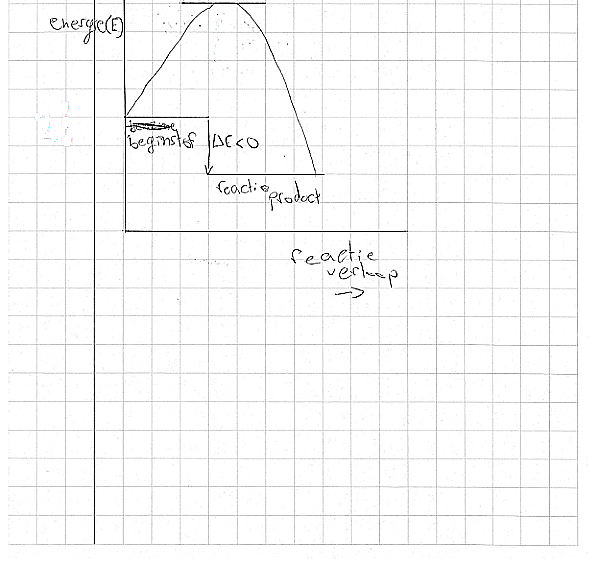 energie(E)
beginstof
ΔE<0
reactie
product
reactie
verloop
→